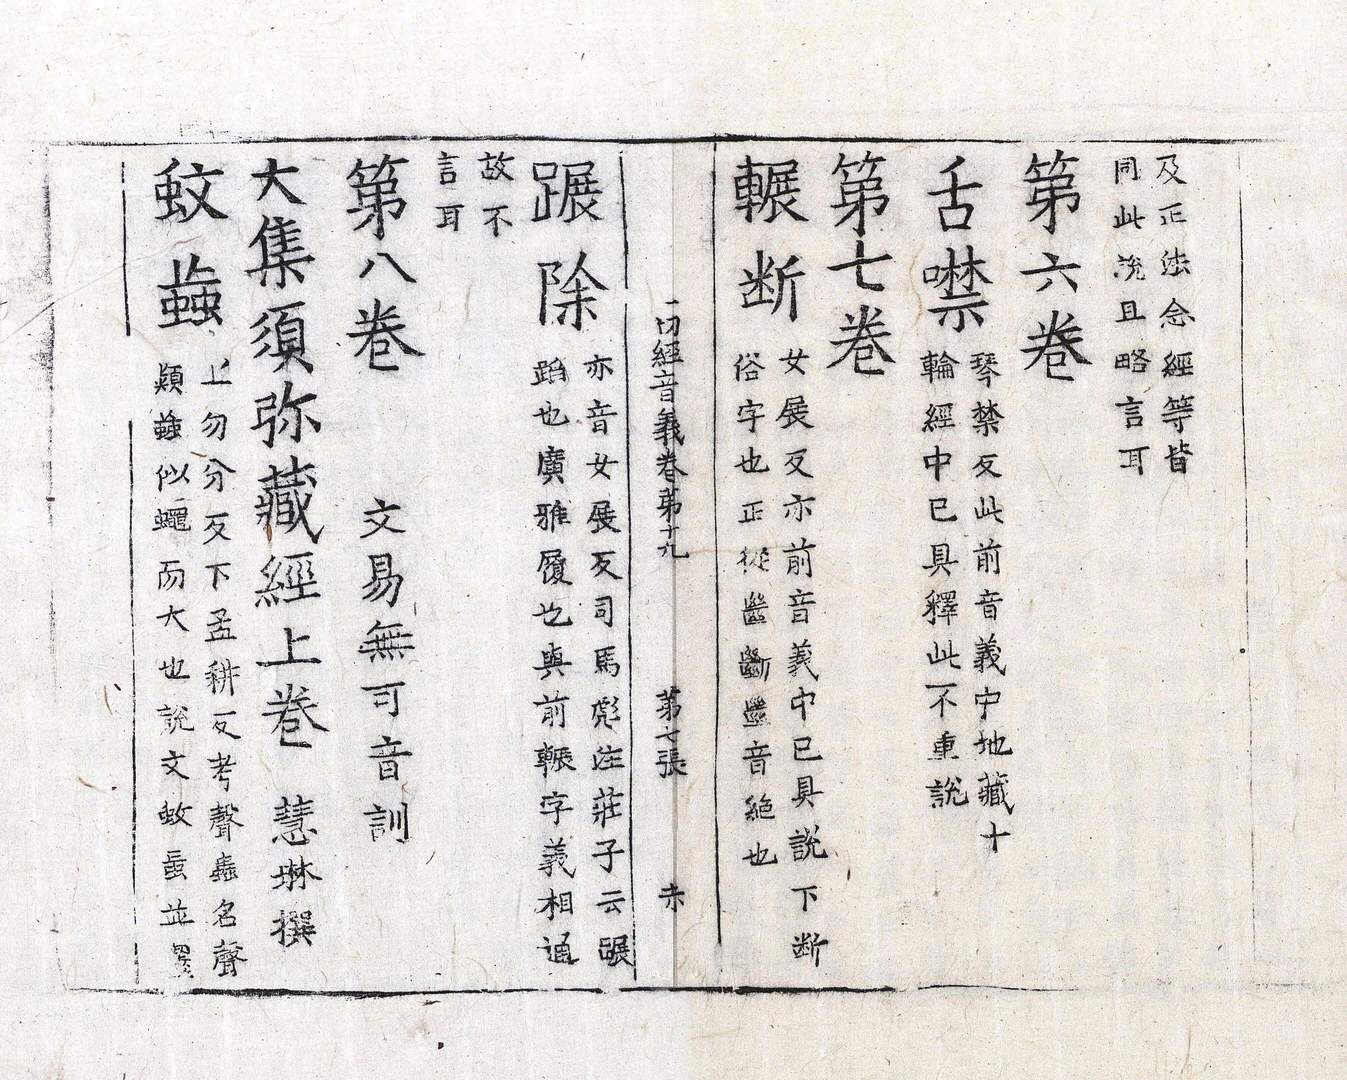 及正法念經等皆
同此說且略言耳
第六卷
舌噤
琴禁反此前音義中地藏十
輪經中已具釋此不重說
第七卷
輾断
女展反亦前音義中已具說下断
俗字也正從㡭斷㡭音絶也
一切經音義卷第十九 第七張 赤
蹍除
亦音女展反司馬彪注莊子云蹍
蹈也廣雅履也與前輾字義相通
故不
言耳
第八卷 文易無可音訓
大集須弥藏經上卷 慧琳撰
蚊蝱
上勿分反下孟耕反考聲蝱名聲
類蝱似蠅而大也說文蚊蝱並